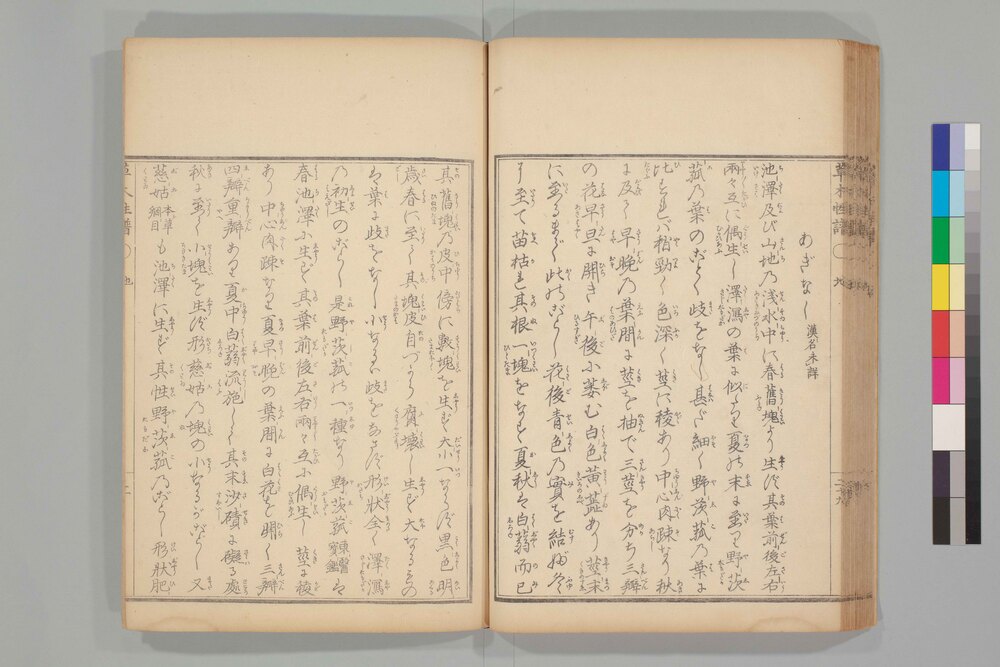 あぎなし 漢名未詳
池澤及び山地乃浅水中に春舊塊より生ず其葉前後左右
兩々互に偶生し澤瀉の葉に似たり夏の末に至り野茨
菰乃葉のごとく歧をなし甚だ細く野茨菰乃葉に
比すれバ稍勁く色深く莖に稜あり中心肉疎なり秋
に及んで早晩の葉間に莖を抽で三莖を分ち三瓣
の花早旦に開き午後小萎む白色黄蕋あり莖末
に至るまで此のごとし花後青色乃實を結ぶ冬
に至て苗枯其根一塊をなす夏秋は白蒻而已
其舊塊乃皮中傍に數塊を生ず大小一ならず黒色明
歳春に至り其塊皮自づから腐壊し生ず大なるもの
は葉に歧をなし小なるは歧をなさず形状全く澤瀉
乃初生のごとし是野茨菰の一種なり野茨菰東醫寶鑑は
春池澤に生ず其葉前後左右兩々互に偶生し莖に稜
あり中心肉疎なり夏早晩の葉間に白花を開く三瓣
四瓣重瓣あり夏中白蒻流施し其末沙磧に礙る處
秋に至り小塊を生ず形慈姑乃塊の小なるがごとし又
慈姑本草綱目も池澤に生ず其性野茨菰乃ごとし形状肥
草木性譜 地